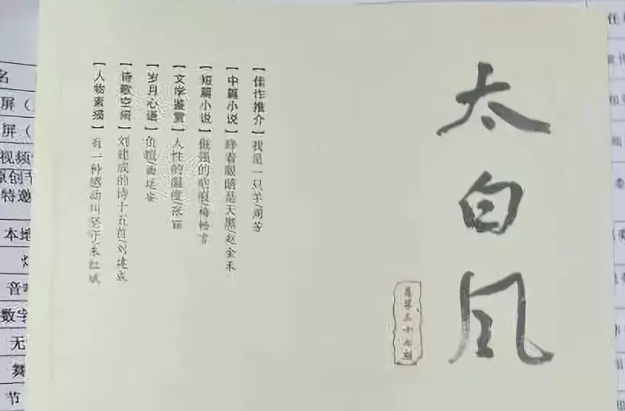 太白风
总第三十七期
【佳作推介】我是一只羊/周苦
【中篇小说】睁着眼睛是天黑/赵金禾
【短篇小说】倔强的
【文学鉴赏】人性的温度/张丽
【岁月心语】
【诗歌空间】刘建成的诗十五首/刘建成
【人物素描】有一种感动叫坚守/朱红斌
名
屏（
屏（
视频
原创节
特邀
本地
音响
数字
无
舞
节